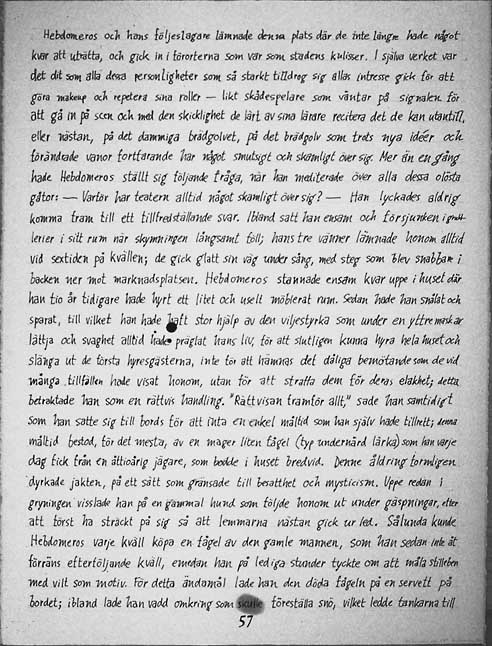 Hebdomeros och hans följeslagare lämnade denna plats där de inte längre hade något
kvar att uträtta, och gick in i förorterna som var som stadens kulisser. I själva verket var
det dit som alla dessa personligheter som så starkt tilldrog sig allas intresse gick för att
göra makeup och repetera sina roller — likt skådespelare som väntar på signalen för
att gå in på scen och med den skicklighet de lärt av sina lärare recitera det de kan utantill,
eller nästan, på det dammiga brädgolvet, på det brädgolv som trots nya idéer och
förändrade vanor fortfarande har något smutsigt och skamligt över sig. Mer än en gång
hade Hebdomeros ställt sig följande fråga, när han mediterade över alla dessa olösta
gåtor: — Varför har teatern alltid något skamligt över sig? — Han lyckades aldrig
komma fram till ett tillfredställande svar. Ibland satt han ensam och försjunken i grubb-
lerier i sitt rum när skymningen långsamt föll; hans tre vänner lämnade honom alltid
vid sextiden på kvällen; de gick glatt sin väg under sång, med steg som blev snabbare i
backen ner mot marknadsplatsen. Hebdomeros stannade ensam kvar uppe i huset där
han tio år tidigare hade hyrt ett litet och uselt möblerat rum. Sedan hade han snålat och
sparat, till vilket han hade haft stor hjälp av den viljestyrka som under en yttre mask av
lättja och svaghet alltid hade präglat hans liv, för att slutligen kunna hyra hela huset och
slänga ut de första hyresgästerna, inte för att hämnas det dåliga bemötande som de vid
många tillfällen hade visat honom, utan för att straffa dem för deras elakhet; detta
betraktade han som en rättvis handling. "Rättvisan framför allt," sade han samtidigt
som han satte sig till bords för att inta en enkel måltid som han själv hade tillrett; denna
måltid bestod, för det mesta, av en mager liten fågel (typ undernärd lärka) som han varje
dag fick från en åttioårig jägare, som bodde i huset bredvid. Denne åldring formligen
dyrkade jakten, på ett sätt som gränsade till besatthet och mysticism. Uppe redan i
gryningen visslade han på en gammal hund som följde honom ut under gäspningar, efter
att först ha sträckt på sig så att lemmarna nästan gick ur led. Sålunda kunde
Hebdomeros varje kväll köpa en fågel av den gamle mannen, som han sedan inte åt
förräns efterföljande kväll, emedan han på lediga stunder tyckte om att måla stilleben
med vilt som motiv. För detta ändamål lade han den döda fågeln på en servett på
bordet; ibland lade han vadd omkring som skulle föreställa snö, vilket ledde tankarna till
57